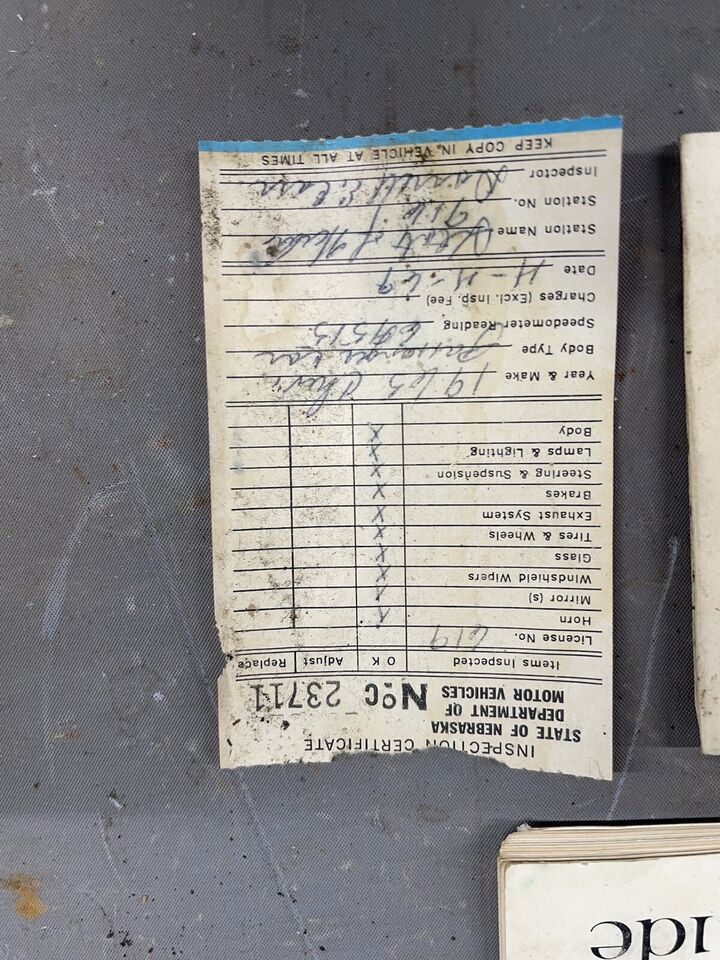 INSPECTION CERTIFICATE
STATE OF NEBRASKA
DEPARTMENT OF
MOTOR VEHICLES
No C 23711
Items Inspected O K Adjust Replace
License No. 619
Horn X
Mirror (s) X
Windshield Wipers X
Glass X
Tires & Wheels X
Exhaust System X
Brakes X
Steering & Suspension X
Lamps & Lighting X
Body X
Year & Make 1963 Chev
Body Type Passenger Car
Speedometer Reading
Charges (Excl. Insp. Fee)
Date 11-11-69
Station Name of
Station No. 916
Inspector
KEEP COPY IN VEHICLE AT ALL TIMES
ide